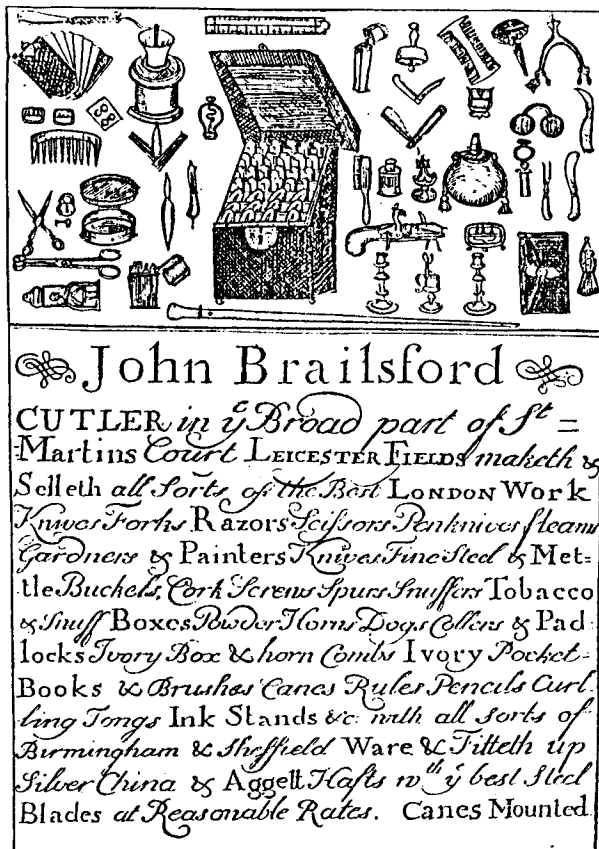 John Brailsford
CUTLER in yᵉ Broad part of Sᵗ =
Martins Court LEICESTER FIELDS maketh &
Selleth all Sorts of the Best LONDON Work
Knives Forks Razors Scissors Penknives fleams
Gardners & Painters Knives Fine Steel & Met=
tle Buckels, Cork Screws Spurs Snuffers Tobacco
& Snuff Boxes Powder Horns Dogs Collers & Pad
locks Ivory Box & horn Combs Ivory Pocket-
Books & Brushes Canes Rules Pencils Curl-
ling Tongs Ink Stands &c. with all sorts of
Birmingham & Sheffield Ware & Fitteth up
Silver China & Aggett Hafts wᵗʰ yᵉ best Steel
Blades at Reasonable Rates. Canes Mounted